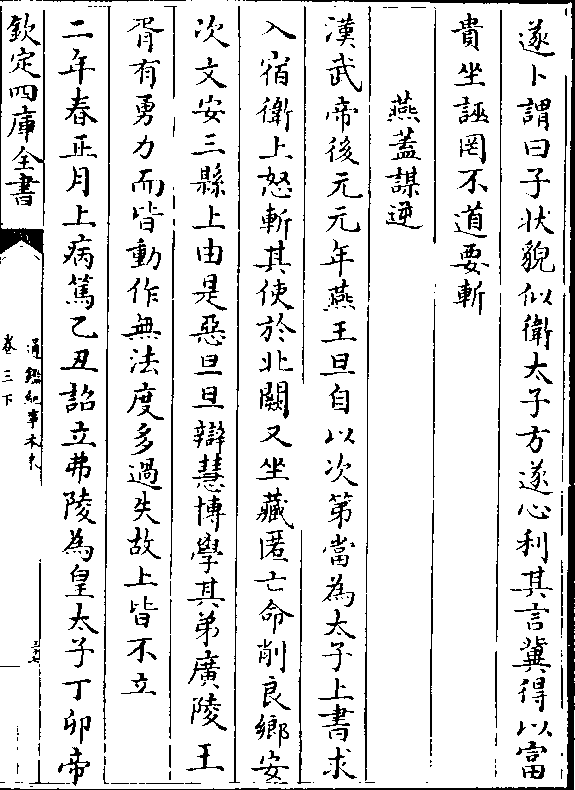 遂卜謂曰子狀貌似衛太子方遂心利其言冀得以富
貴坐誣罔不道要斬
燕蓋謀逆
漢武帝後元元年燕王旦自以次第當為太子上書求
入宿衛上怒斬其使於北闕又坐藏匿亡命削良鄉安
次文安三縣上由是惡旦旦辯慧博學其弟廣陵王
胥有勇力而皆動作無法度多過失故上皆不立
二年春正月上病篤乙丑詔立弗陵為皇太子丁卯帝
欽定四庫全書
通鑑紀事本末
卷三下